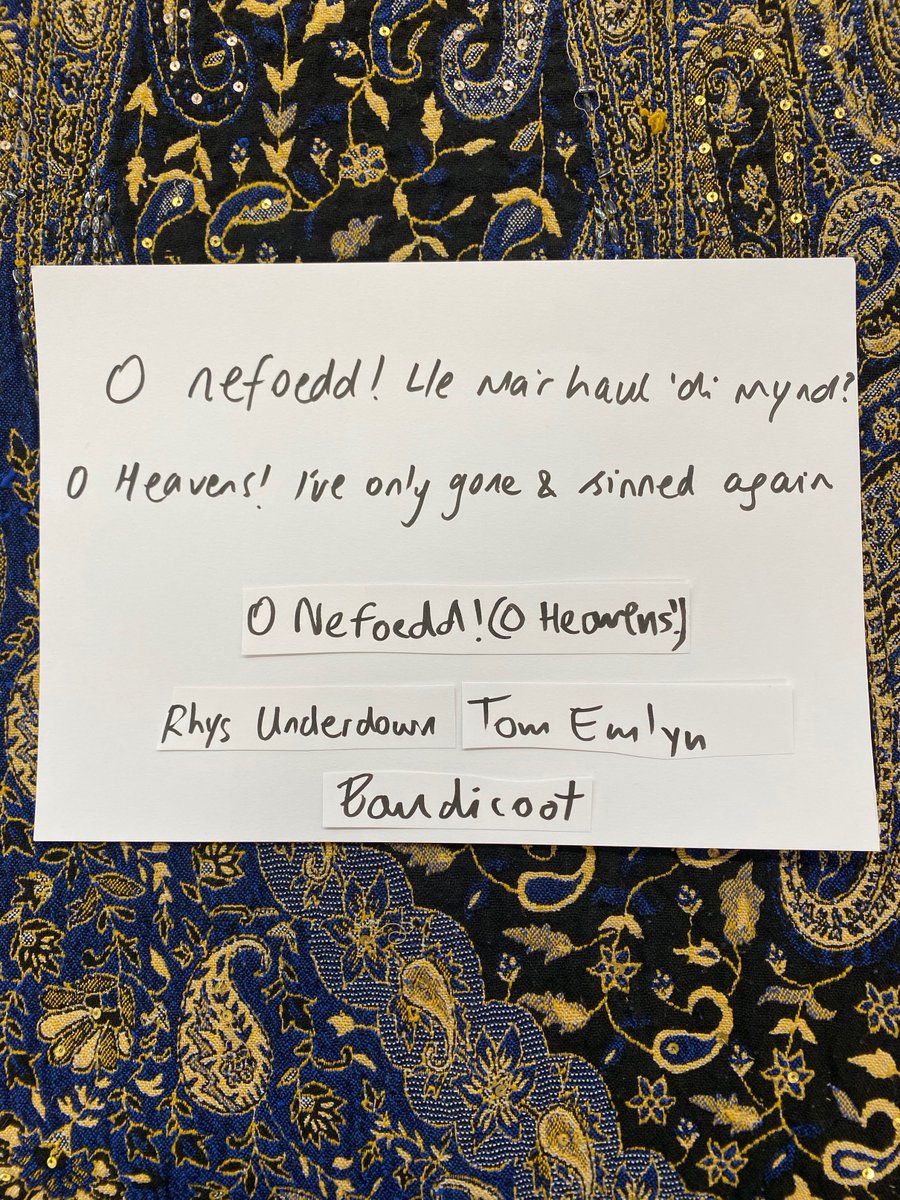 O nefoedd! Lle Ma'r haul 'di Mynd?
O Heavens! I've only gone & sinned again
O Nefoedd! (O Heavens!)
Rhys Underdown Tom Emlyn
Bandicoot